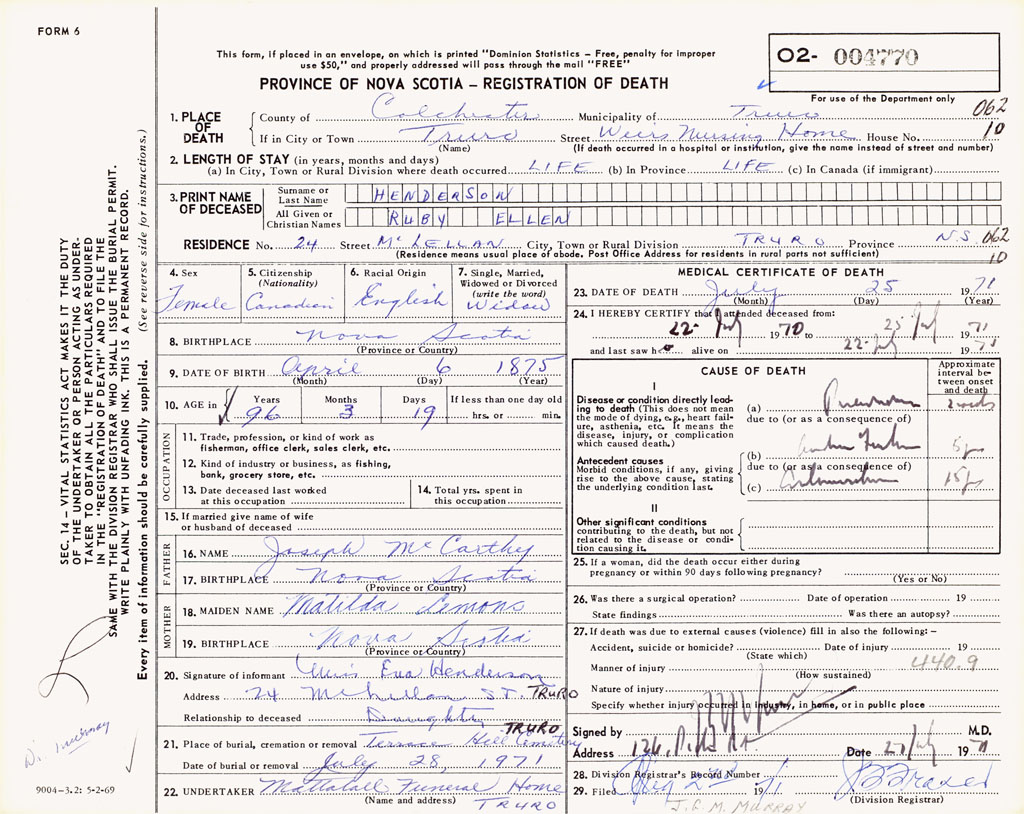 FORM 6
This form, if placed in an envelope, on which is printed "Dominion Statistics – Free, penalty for improper
use $50," and properly addressed will pass through the mail "FREE"
O2- 004770
PROVINCE OF NOVA SCOTIA – REGISTRATION OF DEATH
For use of the Department only
062
10
1. PLACE OF DEATH
County of Colchester Municipality of Truro
If in City or Town Truro Street Weirs Nursing Home House No.
(Name) (If death occurred in a hospital or institution, give the name instead of street and number)
2. LENGTH OF STAY (in years, months and days)
(a) In City, Town or Rural Division where death occurred LIFE (b) In Province LIFE (c) In Canada (if immigrant)
3. PRINT NAME OF DECEASED
Surname or Last Name HENDERSON
All Given or Christian Names RUBY ELLEN
RESIDENCE No. 24 Street McLELLAN City, Town or Rural Division TRURO Province N.S. 062
(Residence means usual place of abode. Post Office Address for residents in rural parts not sufficient) 10
4. Sex
Female
5. Citizenship
(Nationality)
Canadian
6. Racial Origin
English
7. Single, Married,
Widowed or Divorced
(write the word)
Widow
8. BIRTHPLACE Nova Scotia
(Province or Country)
9. DATE OF BIRTH April 6 1875
(Month) (Day) (Year)
10. AGE in
Years Months Days If less than one day old
96 3 19 hrs. or min.
OCCUPATION
11. Trade, profession, or kind of work as
fisherman, office clerk, sales clerk, etc.
12. Kind of industry or business, as fishing,
bank, grocery store, etc.
13. Date deceased last worked
at this occupation
14. Total yrs. spent in
this occupation
15. If married give name of wife
or husband of deceased
FATHER
16. NAME Joseph McCarthy
17. BIRTHPLACE Nova Scotia
(Province or Country)
MOTHER
18. MAIDEN NAME Matilda Lemons
19. BIRTHPLACE Nova Scotia
(Province or Country)
20. Signature of informant Miss Eva Henderson
Address 24 McLellan ST. TRURO
Relationship to deceased Daughter
TRURO
21. Place of burial, cremation or removal Terrace Hill Cemetery
Date of burial or removal July 28, 1971
22. UNDERTAKER Mattatall Funeral Home
(Name and address) TRURO
MEDICAL CERTIFICATE OF DEATH
23. DATE OF DEATH July 25 1971
(Month) (Day) (Year)
24. I HEREBY CERTIFY that I attended deceased from:
22 July 1970 to 25 July 1971
and last saw h alive on 22 July 1971
CAUSE OF DEATH
Approximate
interval be-
tween onset
and death
I
Disease or condition directly lead-
ing to death (This does not mean
the mode of dying, e.g., heart fail-
ure, asthenia, etc. It means the
disease, injury, or complication
which caused death.)
(a) Pneumonia 2 weeks
due to (or as a consequence of)
Antecedent causes
Morbid conditions, if any, giving
rise to the above cause, stating
the underlying condition last.
(b) 5 yrs
due to (or as a consequence of)
(c) 15 yrs
II
Other significant conditions
contributing to the death, but not
related to the disease or condi-
tion causing it.
25. If a woman, did the death occur either during
pregnancy or within 90 days following pregnancy?
(Yes or No)
26. Was there a surgical operation? Date of operation 19
State findings Was there an autopsy?
27. If death was due to external causes (violence) fill in also the following: –
Accident, suicide or homicide? Date of injury 19
(State which) 440.9
Manner of injury
(How sustained)
Nature of injury
Specify whether injury occurred in industry, in home, or in public place
Signed by M.D.
Address Date 27 July 1971
28. Division Registrar's Record Number
29. Filed Aug 2nd 1971
(Division Registrar)
J.G.M. MURRAY
SEC. 14 – VITAL STATISTICS ACT MAKES IT THE DUTY
OF THE UNDERTAKER OR PERSON ACTING AS UNDER-
TAKER TO OBTAIN ALL THE PARTICULARS REQUIRED
IN THE "REGISTRATION OF DEATH" AND TO FILE THE
SAME WITH THE DIVISION REGISTRAR WHO SHALL ISSUE THE BURIAL PERMIT.
WRITE PLAINLY WITH UNFADING INK. THIS IS A PERMANENT RECORD.
Every item of information should be carefully supplied. (See reverse side for instructions.)
9004–3.2: 5-2-69